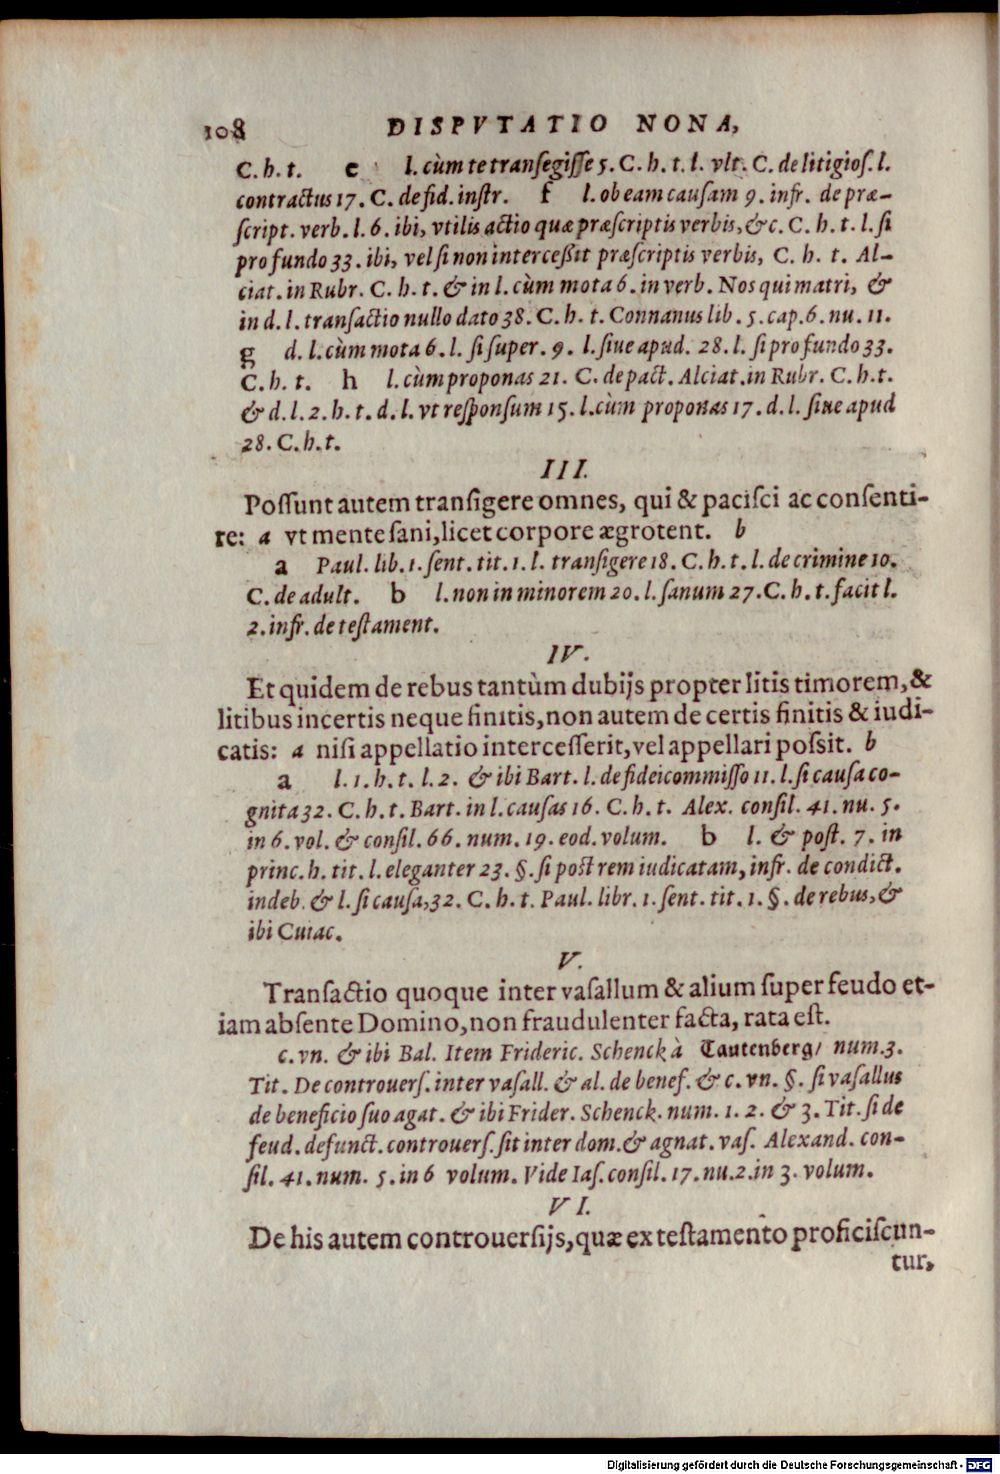 108 DISPVTATIO NONA,
C. h. t. e l. cùm te transegisse 5. C. h. t. l. vlt. C. de litigios. l.
contractus 17. C. de fid. instr. f l. ob eam causam 9. infr. de præ-
script. verb. l. 6. ibi, vtilis actio quæ præscriptis verbis, &c. C. h. t. l. si
pro fundo 33. ibi, vel si non intercessit præscriptis verbis, C. h. t. Al-
ciat. in Rubr. C. h. t. & in l. cùm mota 6. in verb. Nos qui matri, &
in d. l. transactio nullo dato 38. C. h. t. Connanus lib. 5. cap. 6. nu. 11.
g d. l. cùm mota 6. l. si super. 9. l. siue apud. 28. l. si pro fundo 33.
C. h. t. h l. cùm proponas 21. C. de pact. Alciat. in Rubr. C. h. t.
& d. l. 2. h. t. d. l. vt responsum 15. l. cùm proponas 17. d. l. siue apud
28. C. h. t.
III.
Possunt autem transigere omnes, qui & pacisci ac consenti-
re: a vt mente sani, licet corpore ægrotent. b
a Paul. lib. 1. sent. tit. 1. l. transigere 18. C. h. t. l. de crimine 10.
C. de adult. b l. non in minorem 20. l. sanum 27. C. h. t. facit l.
2. infr. de testament.
IV.
Et quidem de rebus tantùm dubijs propter litis timorem, &
litibus incertis neque finitis, non autem de certis finitis & iudi-
catis: a nisi appellatio intercesserit, vel appellari possit. b
a l. 1. h. t. l. 2. & ibi Bart. l. de fideicommisso 11. l. si causa co-
gnita 32. C. h. t. Bart. in l. causas 16. C. h. t. Alex. consil. 41. nu. 5.
in 6. vol. & consil. 66. num. 19. eod. volum. b l. & post. 7. in
princ. h. tit. l. eleganter 23. §. si post rem iudicatam, infr. de condict.
indeb. & l. si causa, 32. C. h. t. Paul. libr. 1. sent. tit. 1. §. de rebus, &
ibi Cuiac.
V.
Transactio quoque inter vasallum & alium super feudo et-
iam absente Domino, non fraudulenter facta, rata est.
c. vn. & ibi Bal. Item Frideric. Schenck à Tautenberg/ num. 3.
Tit. De controuers. inter vasall. & al. de benef. & c. vn. §. si vasallus
de beneficio suo agat. & ibi Frider. Schenck. num. 1. 2. & 3. Tit. si de
feud. defunct. controuers. sit inter dom. & agnat. vas. Alexand. con-
sil. 41. num. 5. in 6 volum. Vide Ias. consil. 17. nu. 2. in 3. volum.
VI.
De his autem controuersijs, quæ ex testamento proficiscun-
tur,
Digitalisierung gefördert durch die Deutsche Forschungsgemeinschaft - DFG